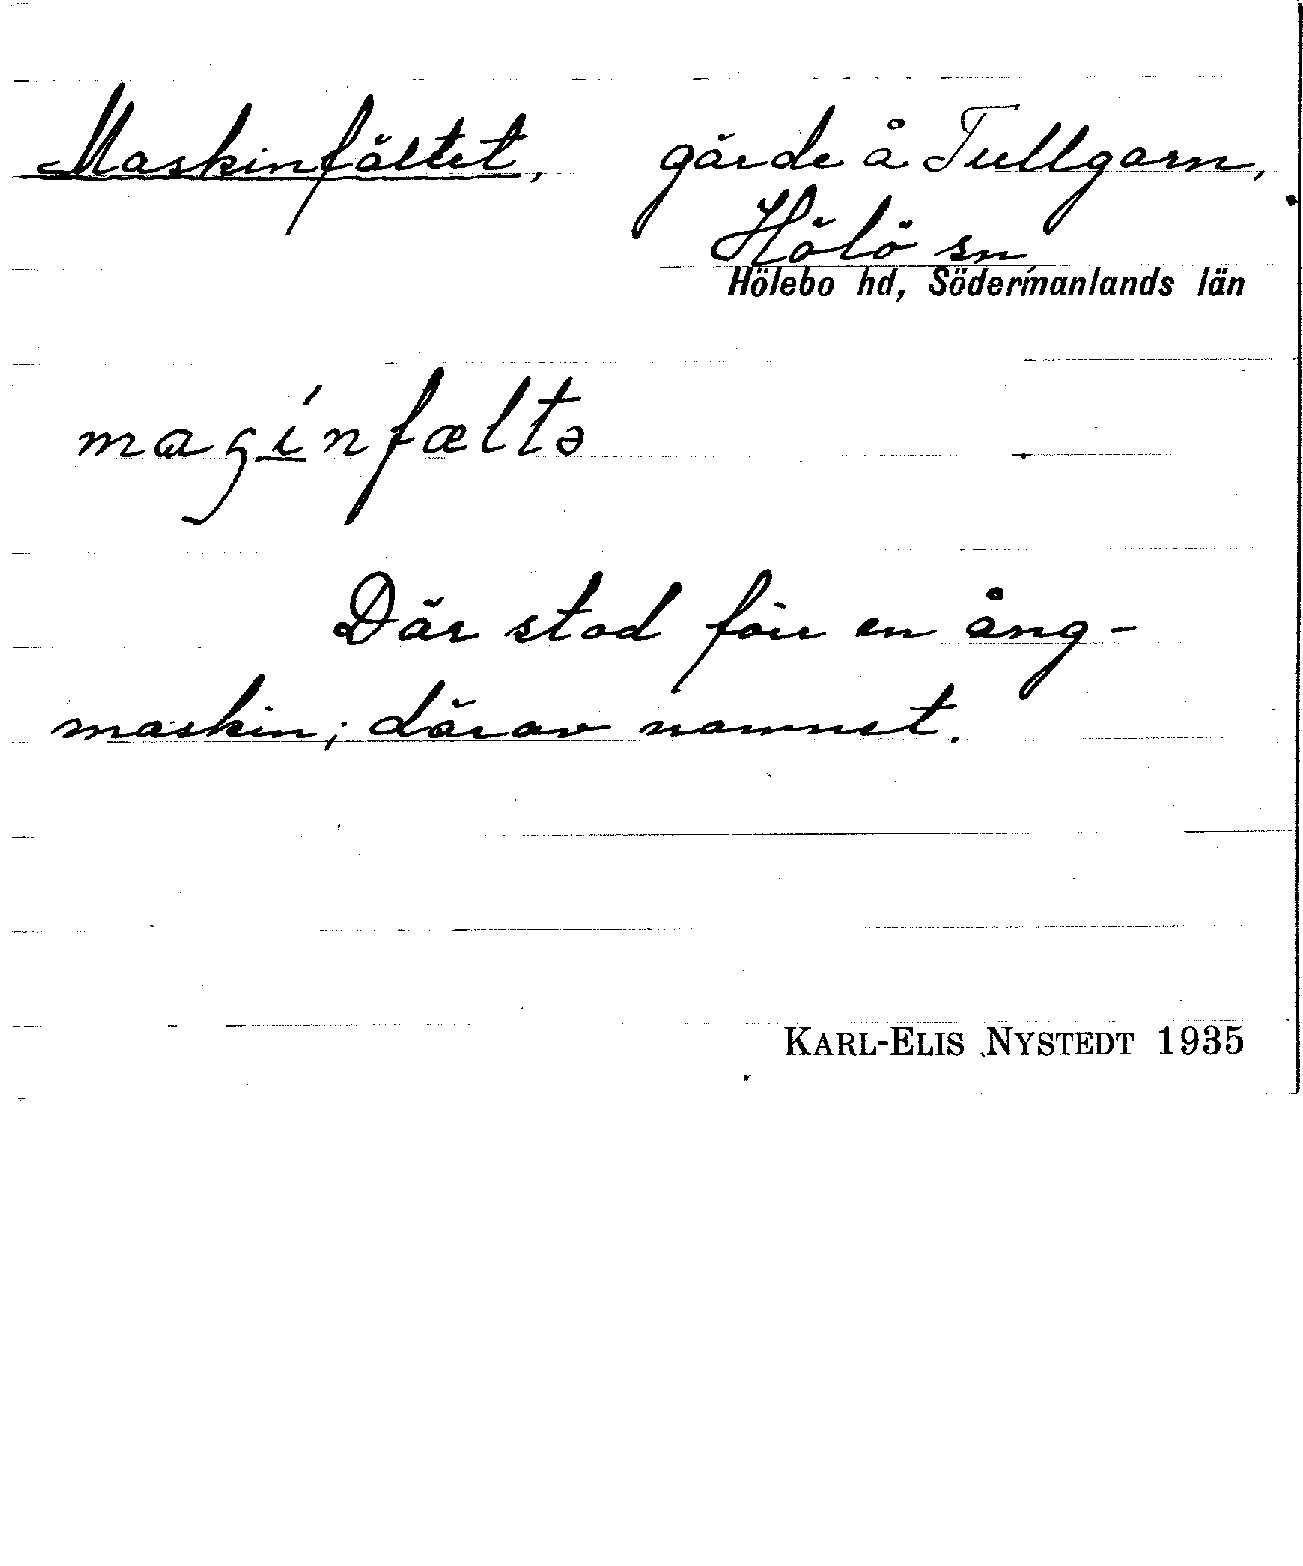 Maskinfältet, gärde å Tullgarn,
Hölö sn
Hölebo hd, Södermanlands län
maʂínfæltə
Där stod förr en ång-
maskin; därav namnet.
KARL-ELIS NYSTEDT 1935